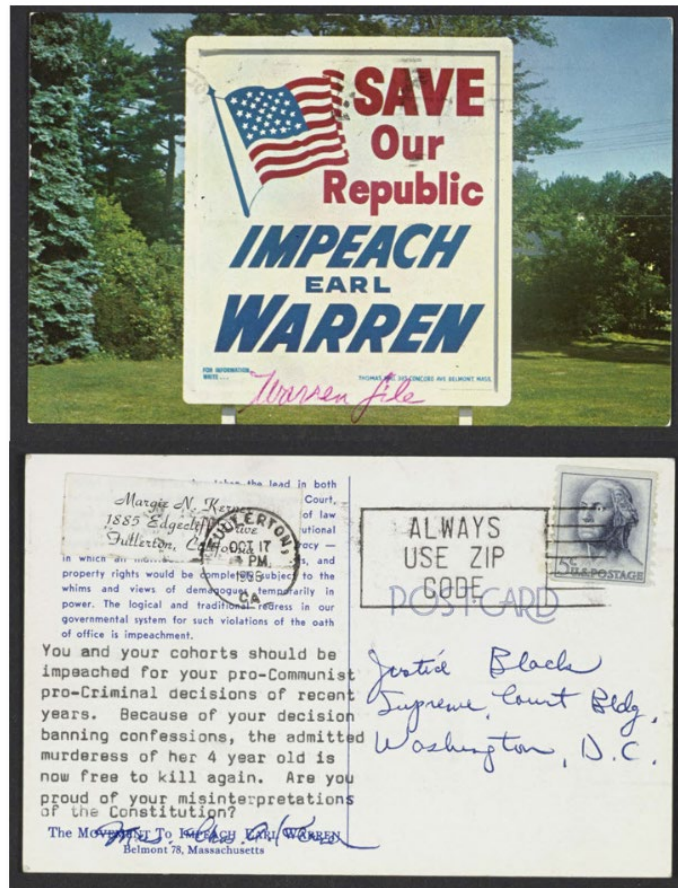 SAVE
Our
Republic
IMPEACH
EARL
WARREN
FOR INFORMATION
WRITE....
THOMAS HILL 385 CONCORD AVE BELMONT MASS.
Warren file
taken the lead in both
Court,
of law
utional
acy —
in which all
s, and
property rights would be completely subject to the
whims and views of demagogues temporarily in
power. The logical and traditional redress in our
governmental system for such violations of the oath
of office is impeachment.
Margie N.
1885 Edgecliff Drive
Fullerton, California
FULLERTON,
OCT 17
PM
CA
ALWAYS
USE ZIP
CODE
5c
U.S. POSTAGE
POST CARD
You and your cohorts should be
impeached for your pro-Communist
pro-Criminal decisions of recent
years. Because of your decision
banning confessions, the admitted
murderess of her 4 year old is
now free to kill again. Are you
proud of your misinterpretations
of the Constitution?
Mrs.
The Movement To Impeach Earl Warren
Belmont 78, Massachusetts
Justice Black
Supreme Court Bldg.
Washington, D.C.